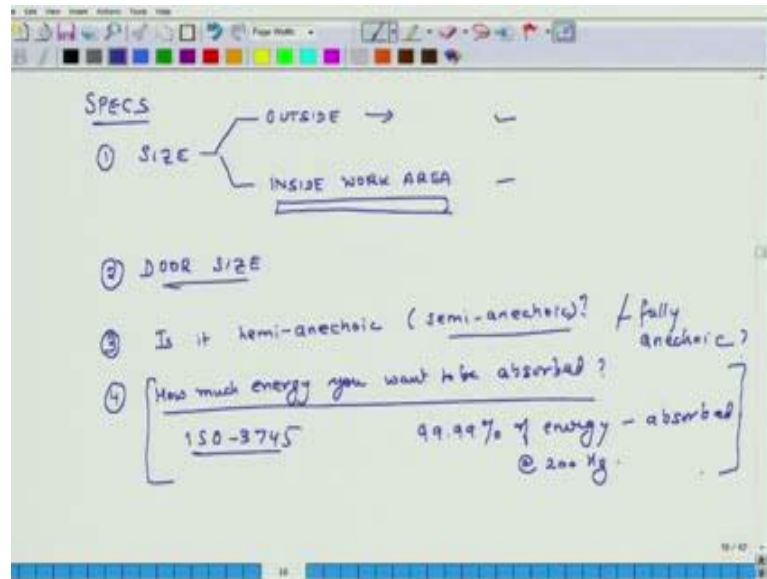 Edit View Insert Actions Tools Help
Page Width
SPECS
① SIZE
OUTSIDE →
INSIDE WORK AREA
② DOOR SIZE
③ Is it hemi-anechoic (semi-anechoic)? / fully anechoic?
④ How much energy you want to be absorbed?
ISO-3745 99.99% of energy - absorbed
@ 200 Hz.